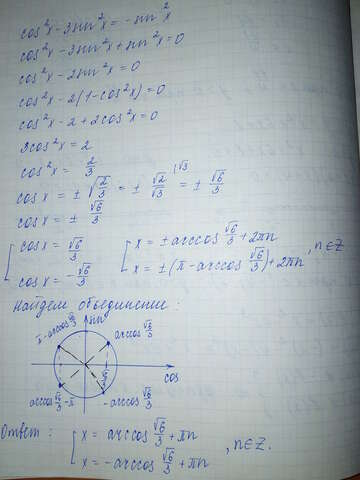 cos²x - 3sin²x = -sin²x
cos²x - 3sin²x + sin²x = 0
cos²x - 2sin²x = 0
cos²x - 2(1-cos²x) = 0
cos²x - 2 + 2cos²x = 0
3cos²x = 2
cos²x = 2/3
cos x = ± √(2/3) = ± √2/√3 |·√3 = ± √6/3
cos x = ± √6/3
[ cos x = √6/3 [ x = ± arccos √6/3 + 2πn
cos x = -√6/3 x = ± (π - arccos √6/3) + 2πn , n∈Z
Найдем объединение :
sin
π - arccos √6/3 arccos √6/3
√6/3 cos
arccos √6/3 - π - arccos √6/3
Ответ : [ x = arccos √6/3 + πn
x = -arccos √6/3 + πn , n∈Z.